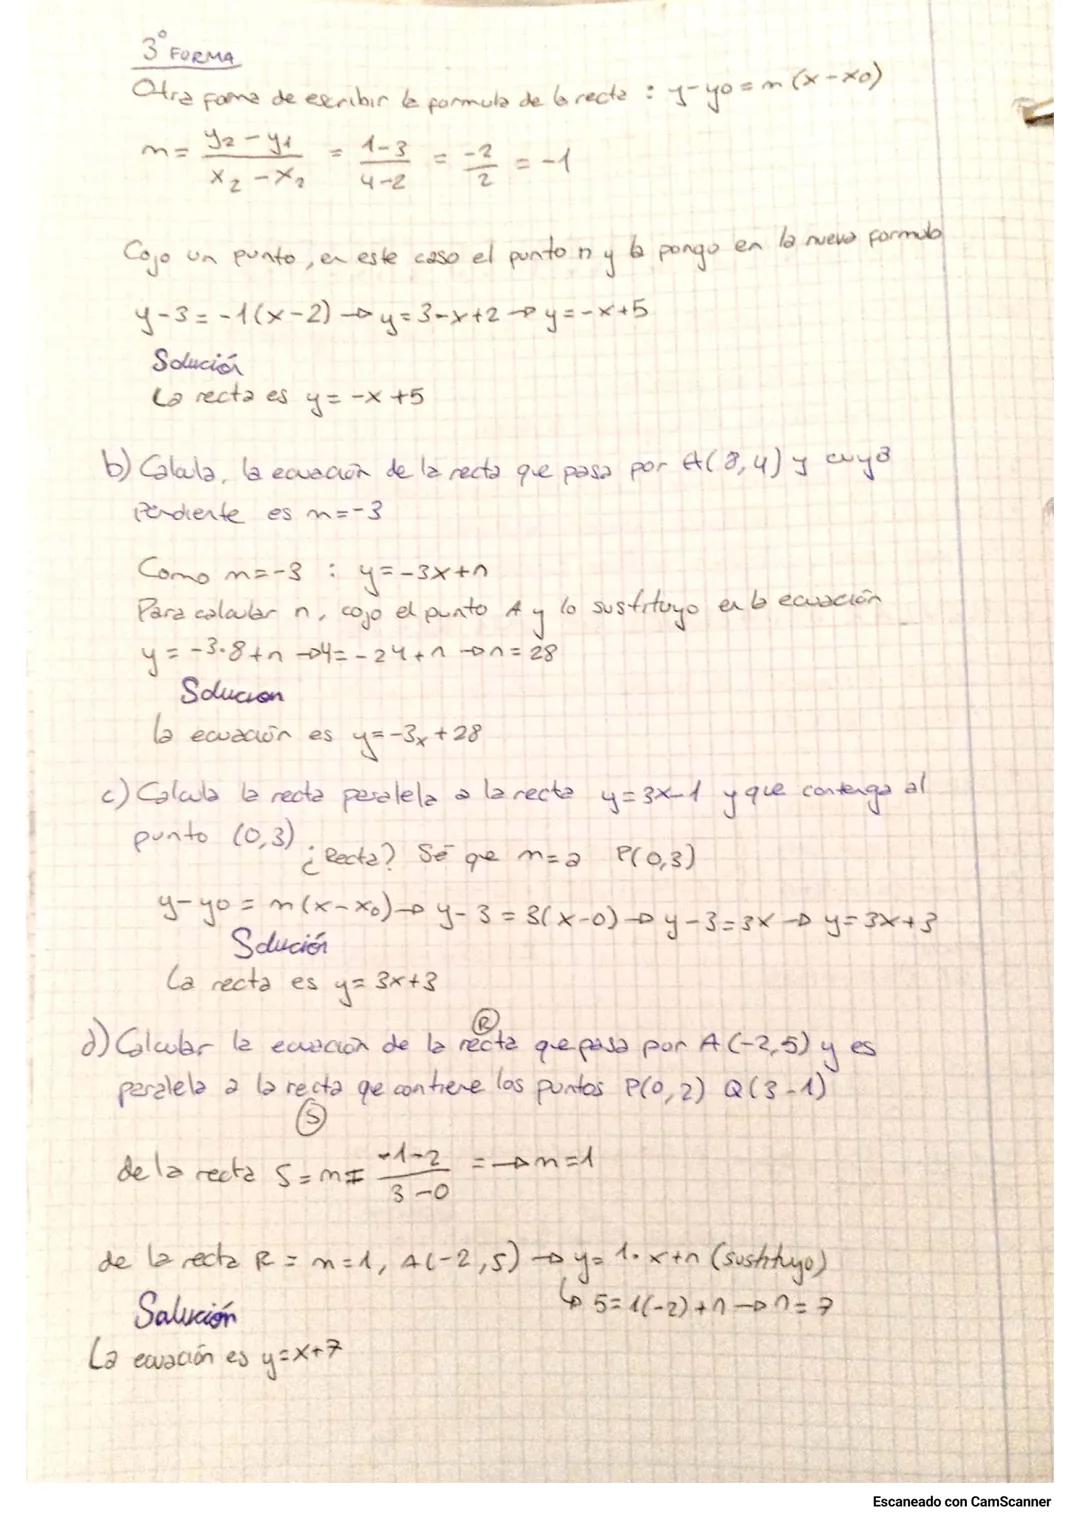 3º FORMA
Otra forma de escribir la formula de la recta : y-y0 = m (x-x0)
m = y2 - y1 / x2 - x2 = 1-3 / 4-2 = -2 / 2 = -1
Cojo un punto, en este caso el punto n y lo pongo en la nueva formula
y-3 = -1(x-2) → y = 3-x+2 → y = -x+5
Solución
La recta es y = -x +5
b) Calcula, la ecuación de la recta que pasa por A(8,4) y cuya
Pendiente es m=-3
Como m=-3 : y=-3x+n
Para calcular n, cojo el punto A y lo sustituyo en la ecuación
y = -3·8+n → 4 = -24+n → n = 28
Solucion
la ecuación es y=-3x+28
c) Calcula la recta paralela a la recta y=3x-1 y que contenga al
punto (0,3)
¿Recta? Sé que m=a P(0,3)
y-y0 = m(x-x0) → y-3 = 3(x-0) → y-3=3x → y=3x+3
Solución
La recta es y = 3x+3
R
d) Calcular la ecuación de la recta que pasa por A(-2,5) y es
paralela a la recta qe contiene los puntos P(0,2) Q(3-1)
S
de la recta S = m = -1-2 / 3-0 = → m=1
de la recta R = m=1, A(-2,5) → y= 1·x+n (sustituyo)
↳ 5=1(-2)+n → n=7
Solución
La ecuación es y=x+7
Escaneado con CamScanner